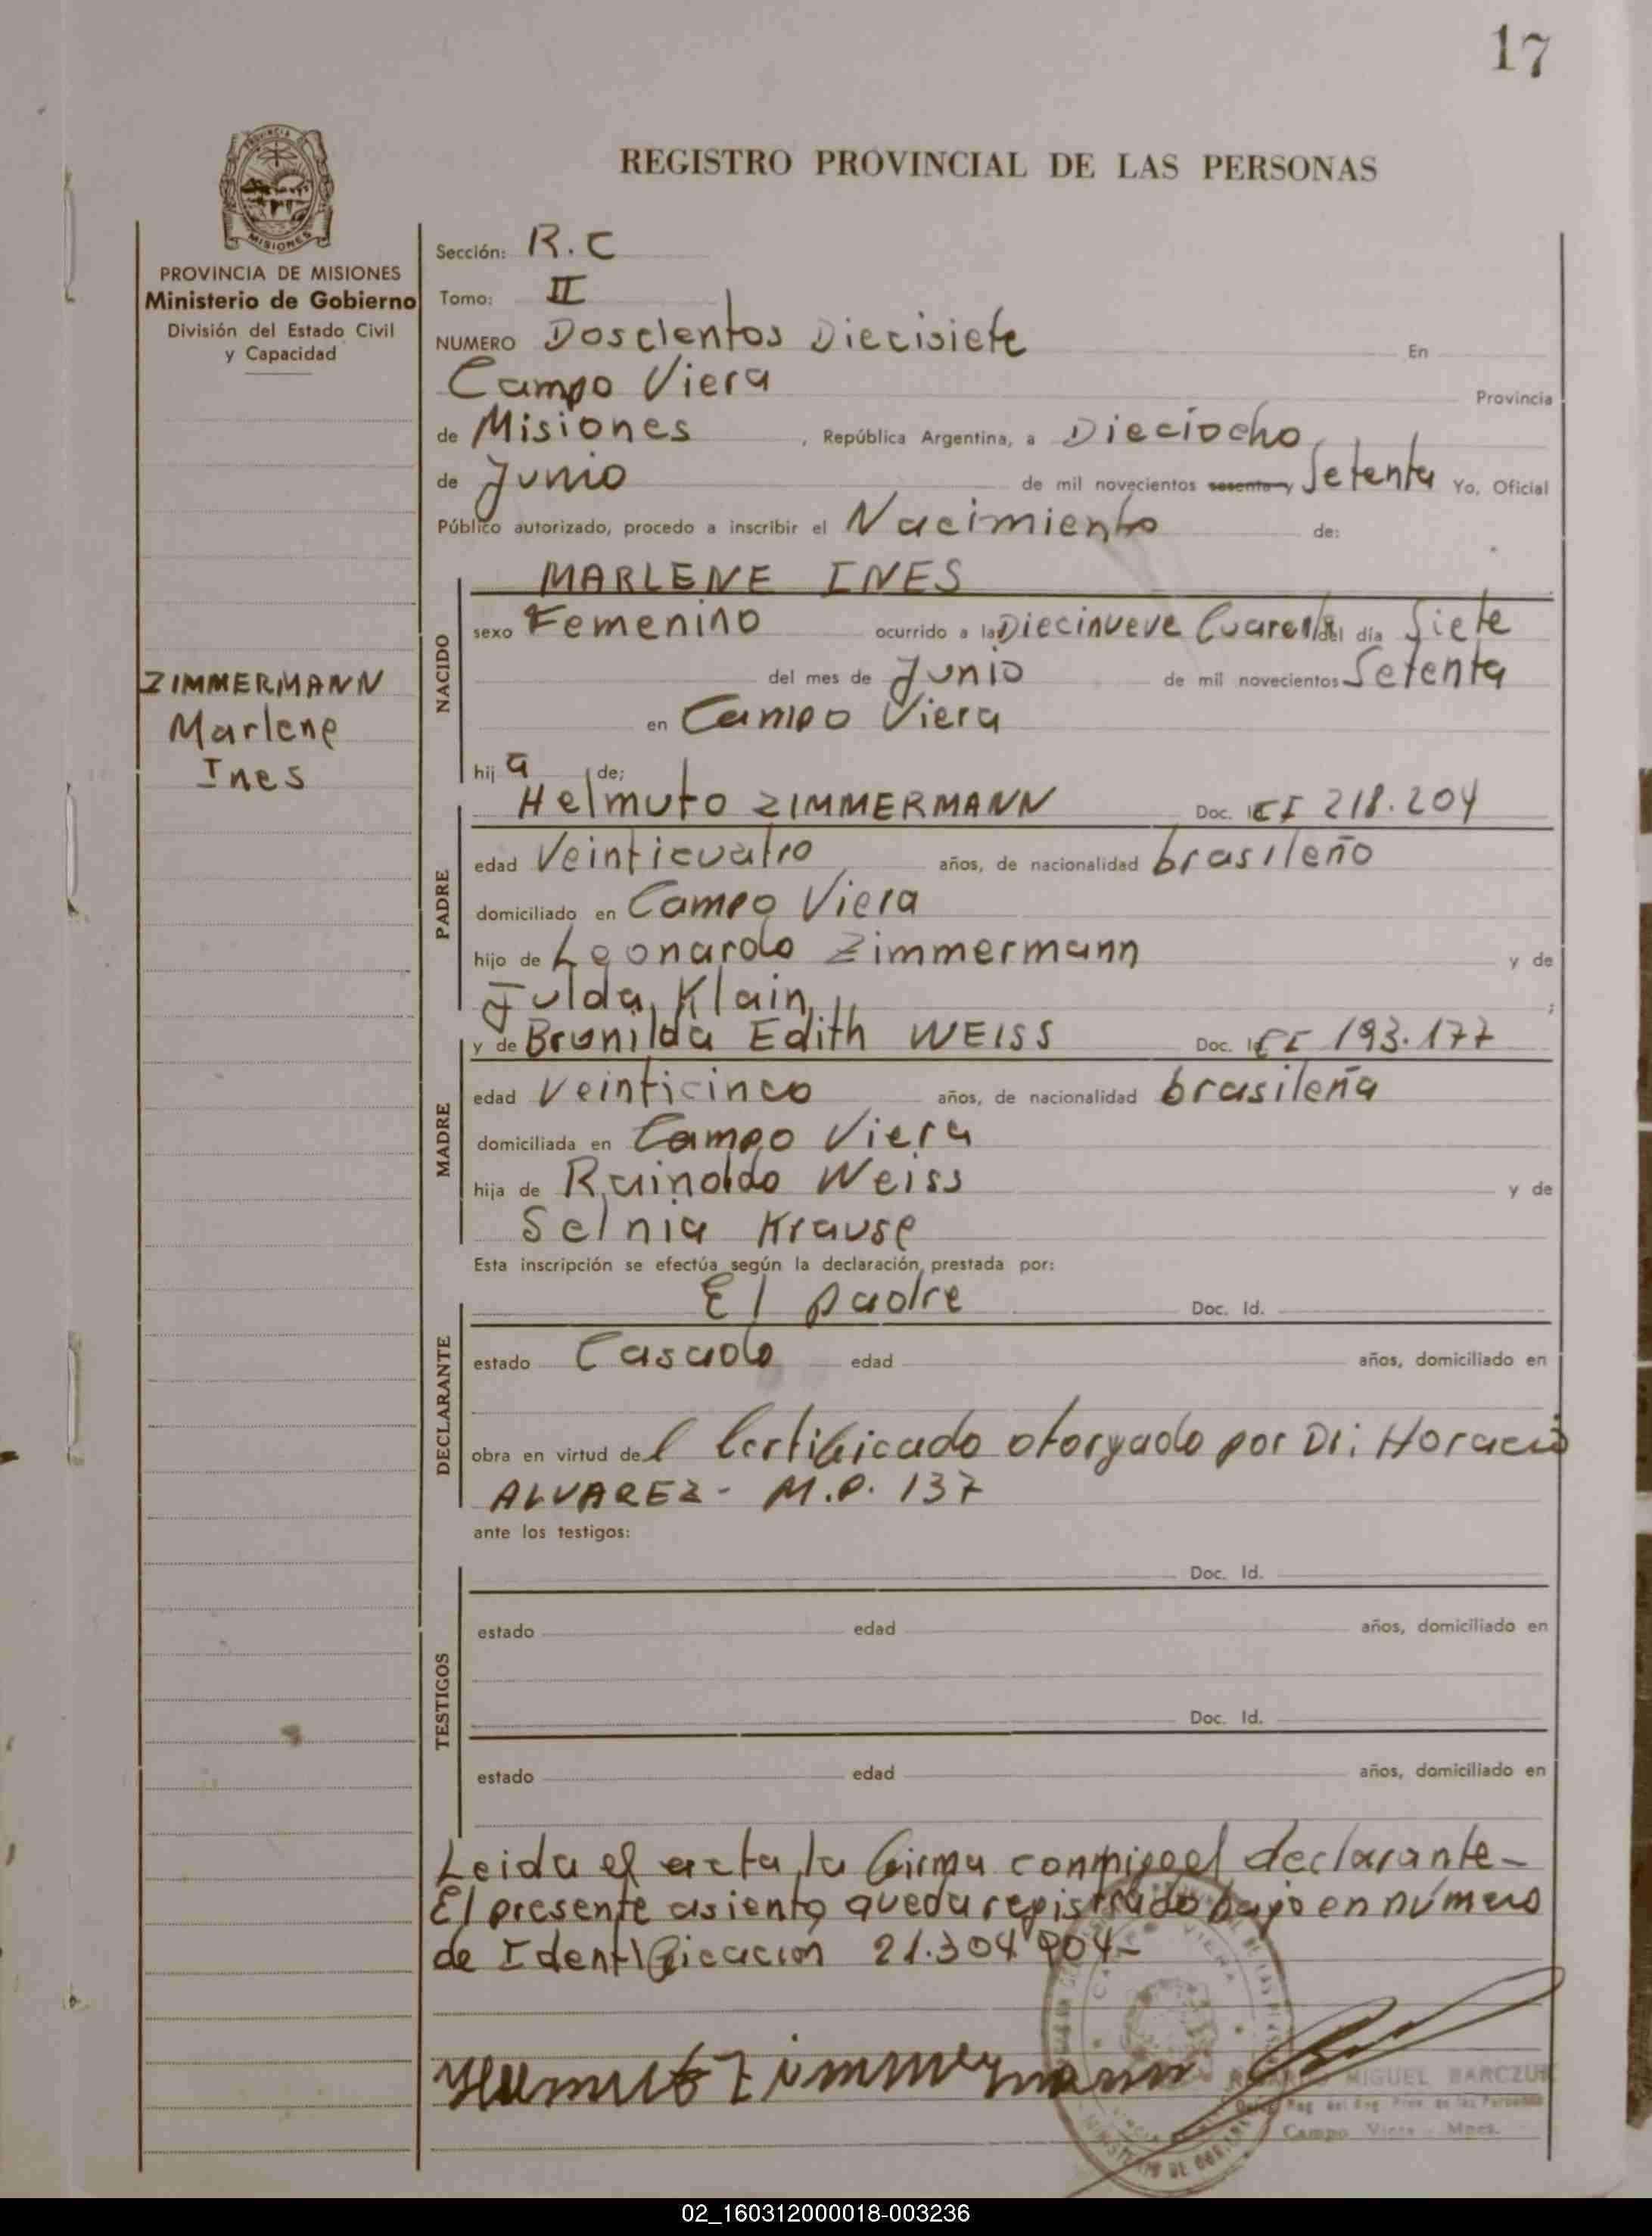 17
PROVINCIA
MISIONES
REGISTRO PROVINCIAL DE LAS PERSONAS
PROVINCIA DE MISIONES
Ministerio de Gobierno
División del Estado Civil
y Capacidad
Sección: R.C
Tomo: II
NUMERO Doscientos Diecisiete En
Campo Viera Provincia
de Misiones, República Argentina, a Dieciocho
de Junio de mil novecientos sesenta y Setenta Yo, Oficial
Público autorizado, procedo a inscribir el Nacimiento de:
ZIMMERMANN
Marlene
Ines
NACIDO
MARLENE INES
sexo Femenino ocurrido a las Diecinueve Cuarenta del día Siete
del mes de Junio de mil novecientos Setenta
en Campo Viera
hija de;
PADRE
Helmuto ZIMMERMANN Doc. I CI 218.204
edad Veinticuatro años, de nacionalidad brasileño
domiciliado en Campo Viera
hijo de Leonardo Zimmermann y de
Julda Klain ;
MADRE
y de Brunilda Edith WEISS Doc. I CI 193.177
edad Veinticinco años, de nacionalidad brasileña
domiciliada en Campo Viera
hija de Rainoldo Weiss y de
Selnia Krause
Esta inscripción se efectúa según la declaración prestada por:
DECLARANTE
El padre Doc. Id.
estado Casado edad años, domiciliado en
obra en virtud del Certificado otorgado por Dr: Horacio
ALVAREZ - M.P. 137
ante los testigos:
TESTIGOS
Doc. Id.
estado edad años, domiciliado en
Doc. Id.
estado edad años, domiciliado en
Leida el acta la firma conmigo el declarante -
El presente asiento queda registrado bajo en número
de Identificación 21.304.904-
Helmuto Zimmermann
MIGUEL BARCZUK
Reg. del Reg. Prov. de las Personas
Campo Viera - Mnes.
CAMPO VIERA
MINISTERIO DE GOBIERNO
02_160312000018-003236